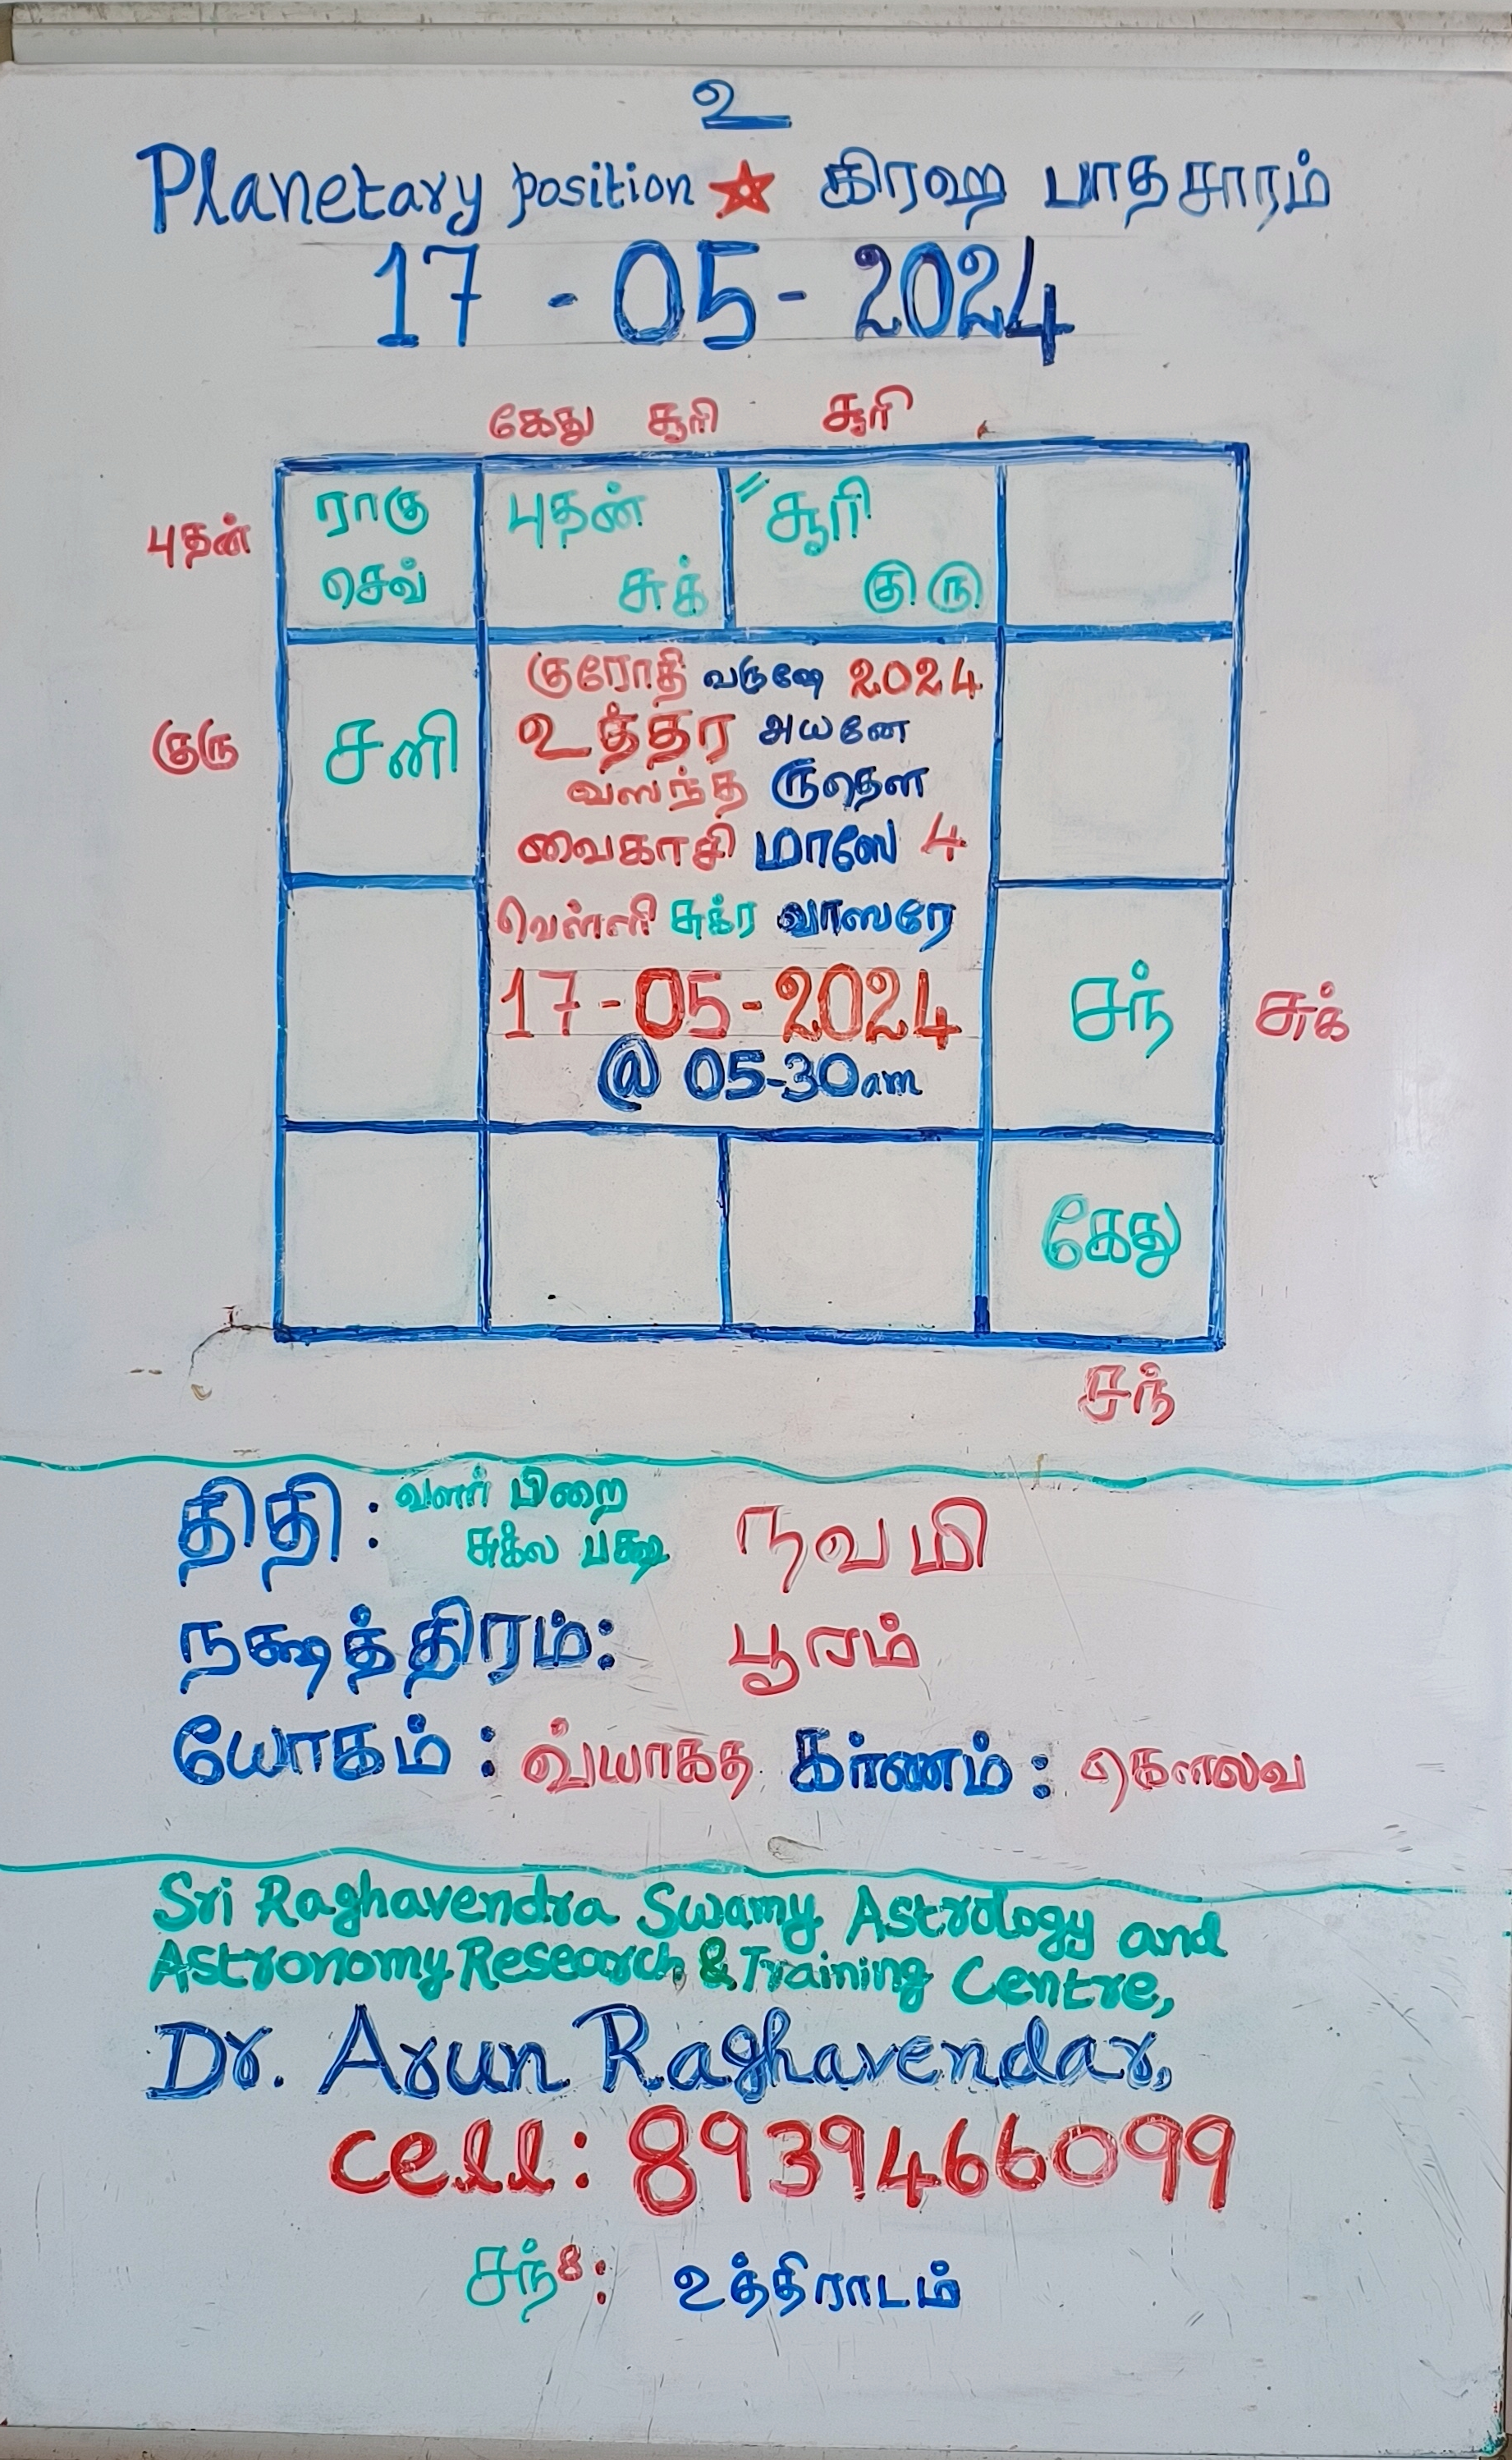 உ
Planetary position ★ கிரஹ பாதசாரம்
17 - 05 - 2024
கேது சூரி சூரி
புதன்
ராகு
செவ்
புதன்
சுக்
" சூரி
குரு
குரு
சனி
குரோதி வருஷே 2024
உத்தர அயனே
வஸந்த ருதௌ
வைகாசி மாஸே 4
வெள்ளி சுக்ர வாஸரே
17-05-2024
@ 05-30am
சந்
சுக்
கேது
சந்
திதி : வளர் பிறை
சுக்ல பக்ஷ நவமி
நக்ஷத்திரம்: பூரம்
யோகம் : வ்யாகத கர்ணம் : கௌலவ
Sri Raghavendra Swamy Astrology and
Astronomy Research & Training Centre,
Dr. Arun Raghavendar,
cell: 8939466099
சந்8: உத்திராடம்